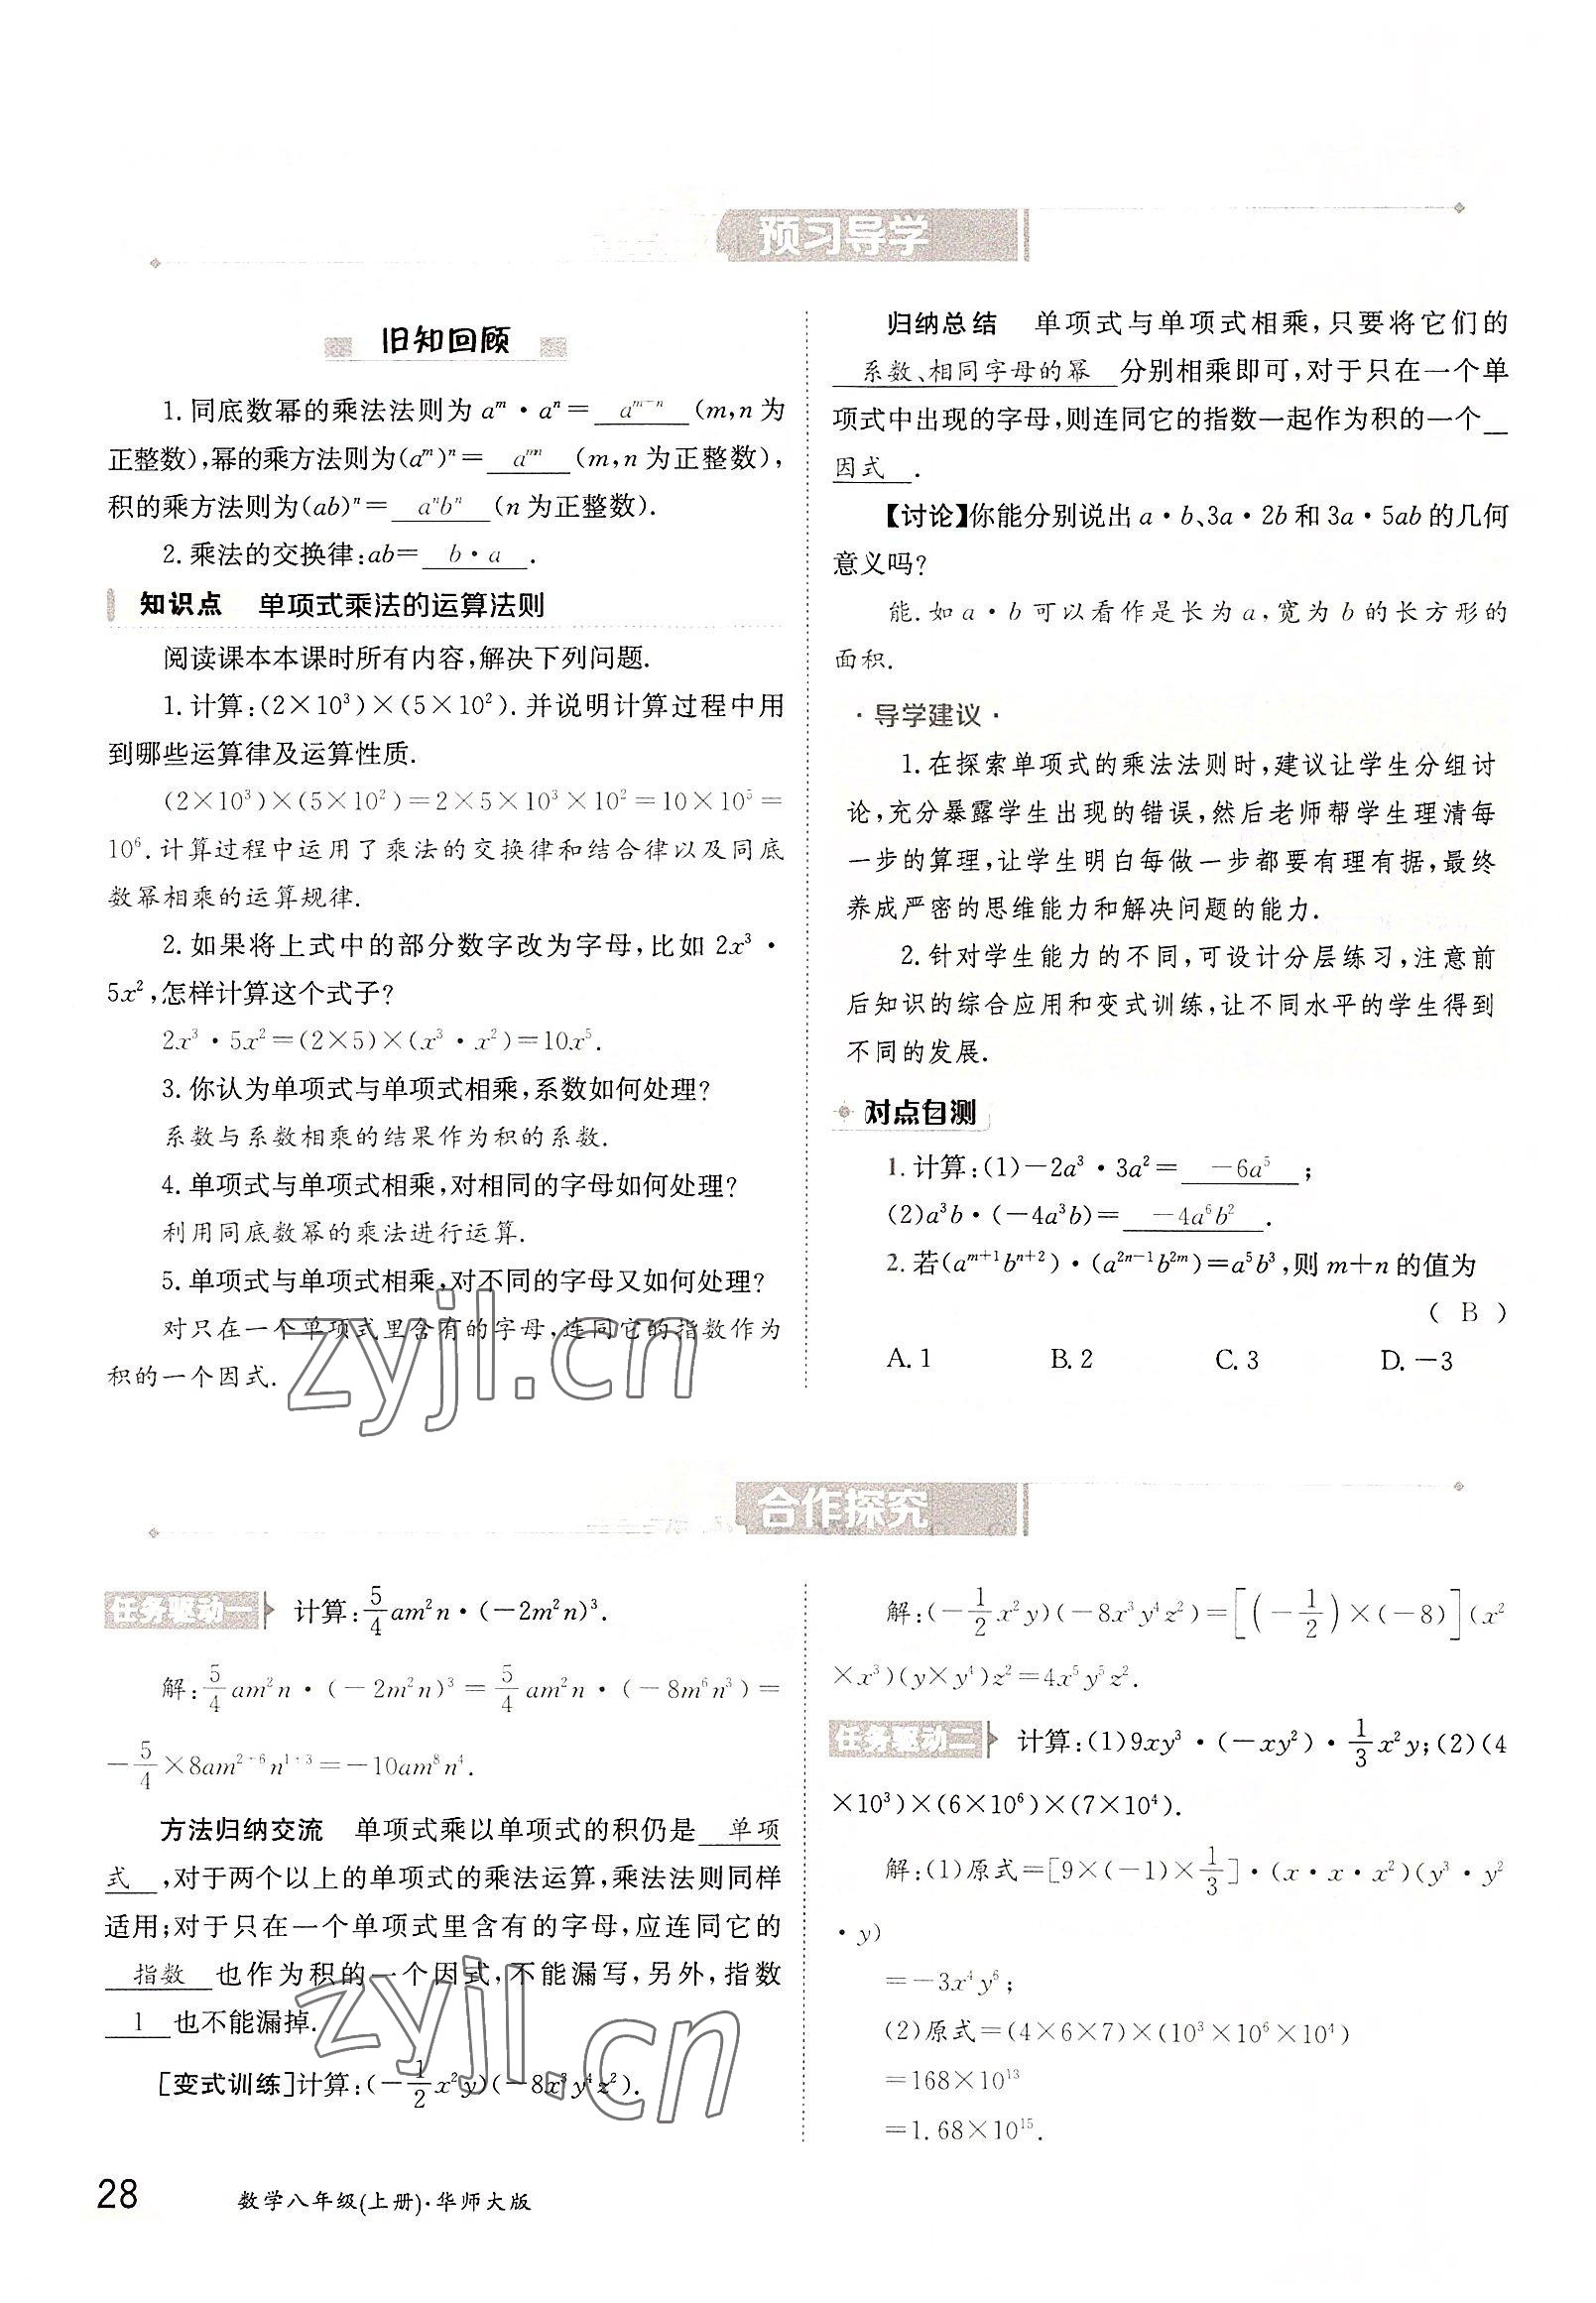 预习导学
旧知回顾
1.同底数幂的乘法法则为 aᵐ·aⁿ= aᵐ⁻ⁿ (m,n 为
正整数),幂的乘方法则为(aᵐ)ⁿ= aᵐⁿ (m,n 为正整数),
积的乘方法则为(ab)ⁿ= aⁿbⁿ (n 为正整数).
2.乘法的交换律:ab= b·a .
知识点 单项式乘法的运算法则
阅读课本本课时所有内容,解决下列问题.
1.计算:(2×10³)×(5×10²).并说明计算过程中用
到哪些运算律及运算性质.
(2×10³)×(5×10²)=2×5×10³×10²=10×10⁵=
10⁶.计算过程中运用了乘法的交换律和结合律以及同底
数幂相乘的运算规律.
2.如果将上式中的部分数字改为字母,比如 2x³·
5x²,怎样计算这个式子?
2x³·5x²=(2×5)×(x³·x²)=10x⁵.
3.你认为单项式与单项式相乘,系数如何处理?
系数与系数相乘的结果作为积的系数.
4.单项式与单项式相乘,对相同的字母如何处理?
利用同底数幂的乘法进行运算.
5.单项式与单项式相乘,对不同的字母又如何处理?
对只在一个单项式里含有的字母,连同它的指数作为
积的一个因式.
zyjl.cn
归纳总结 单项式与单项式相乘,只要将它们的
系数、相同字母的幂 分别相乘即可,对于只在一个单
项式中出现的字母,则连同它的指数一起作为积的一个
因式 .
【讨论】你能分别说出 a·b、3a·2b 和 3a·5ab 的几何
意义吗?
能.如 a·b 可以看作是长为 a,宽为 b 的长方形的
面积.
·导学建议·
1.在探索单项式的乘法法则时,建议让学生分组讨
论,充分暴露学生出现的错误,然后老师帮学生理清每
一步的算理,让学生明白每做一步都要有理有据,最终
养成严密的思维能力和解决问题的能力.
2.针对学生能力的不同,可设计分层练习,注意前
后知识的综合应用和变式训练,让不同水平的学生得到
不同的发展.
对点自测
1.计算:(1)-2a³·3a²= -6a⁵ ;
(2)a³b·(-4a³b)= -4a⁶b² .
2.若(aᵐ⁺¹bⁿ⁺²)·(a²ⁿ⁻¹b²ᵐ)=a⁵b³,则 m+n 的值为
( B )
A.1 B.2 C.3 D.-3
合作探究
任务驱动一 计算:5/4am²n·(-2m²n)³.
解:5/4am²n·(-2m²n)³=5/4am²n·(-8m⁶n³)=
-5/4×8am²⁺⁶n¹⁺³=-10am⁸n⁴.
方法归纳交流 单项式乘以单项式的积仍是 单项
式 ,对于两个以上的单项式的乘法运算,乘法法则同样
适用;对于只在一个单项式里含有的字母,应连同它的
指数 也作为积的一个因式,不能漏写,另外,指数
1 也不能漏掉.
[变式训练]计算:(-1/2x²y)(-8x³y⁴z²).
zyjl.cn
解:(-1/2x²y)(-8x³y⁴z²)=[(-1/2)×(-8)](x²
×x³)(y×y⁴)z²=4x⁵y⁵z².
任务驱动二 计算:(1)9xy³·(-xy²)·1/3x²y;(2)(4
×10³)×(6×10⁶)×(7×10⁴).
解:(1)原式=[9×(-1)×1/3]·(x·x·x²)(y³·y²
·y)
=-3x⁴y⁶;
(2)原式=(4×6×7)×(10³×10⁶×10⁴)
=168×10¹³
=1.68×10¹⁵.
28 数学八年级(上册)·华师大版